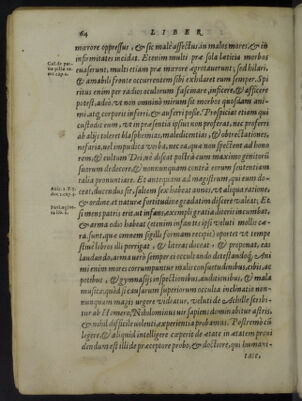 64 LIBER
mœrore oppressus, & sic malè affectus, in malos mores, & in
infirmitates incidat. Etenim multi præ sola lœticia morbos
euaserunt, multi etiam præ mœrore ægrotauerunt: sed hilari,
& amabili fronte occurrentem sibi exhilaret eum semper. Spi
ritus enim per radios oculorum fascinare, inficere, & afficere
potest, adeò vt non omninò mirum sit morbos quosdam ani-
mi, atq; corporis inferri, & auferri posse. Prospiciat etiam qui
custodit eum, ne turpia, nec falsa verba proferat, nec proferri
ab alijs toleret blasphemias, maledicentias, & obtrectationes,
nefarias, vel impudicas voces, nec ea, quæ non spectent ad hono
rem, & cultum Dei: ne discat postrà cum maximo genitorũ
suorum dedecore, & nunquam contrà eorum sententiam
talia pronunciare. Et antequam ad magistrum, qui eum do-
ceat, ducendus sit, saltem sex habeat annos, vt aliqua ratione,
& ordine, at naturæ fortitudine gradatim discere valeat. Et
si mens patris erit, vt infans, gratia literis incumbat,
& arma odis habeat (etenim infantes ipsi veluti molles ce
ra sunt, quæ omnem sigilli formam recipit) oportet vt tempe
stiuè libros illi porrigat, & literas doceat, & proponat, eas
laudando, arma uerò semper ei occulendo detestandoq́;. Ani
mi enim mores corrumpuntur malis consuetudinibus, cibis, ac
potibus, & gymnasijs inspectionibus, auditionibus, & malis
musicis, quid si causarum superiorum occulta inclinatio non-
nunquam magis urgere uideatur, veluti de Achille scribi-
tur ab Homero. Nihilominus uir sapiens dominabitur astris,
& nihil difficile uolenti, experientia probamus. Postremò cũ
legere, & aliquid intelligere cœperit de ætate in ætatem proui
dendum est illi de præceptore probo, & doctore, qui humani-
tate,
Gal. de
cap. 1.
Aris. 1. P.